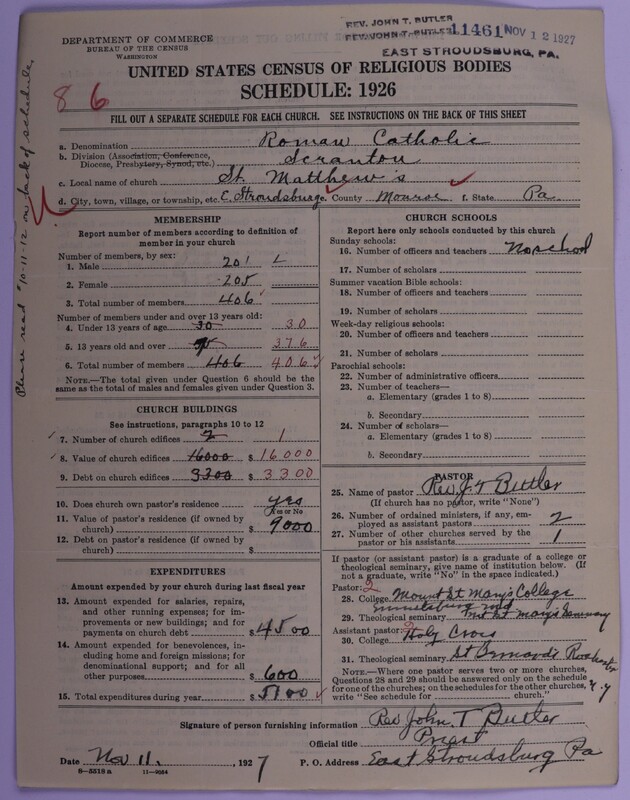 DEPARTMENT OF COMMERCE
BUREAU OF THE CENSUS
WASHINGTON
REV. JOHN T. BUTLER
REV. JOHN T. BUTLER
11461 NOV 12 1927
EAST STROUDSBURG, PA.
UNITED STATES CENSUS OF RELIGIOUS BODIES
SCHEDULE: 1926
8 6
FILL OUT A SEPARATE SCHEDULE FOR EACH CHURCH. SEE INSTRUCTIONS ON THE BACK OF THIS SHEET
Please read #10-11-12 on back of schedule
a. Denomination Roman Catholic
b. Division (Association, Conference, Diocese, Presbytery, Synod, etc.) Scranton
c. Local name of church St. Matthew's
d. City, town, village, or township, etc E. Stroudsburg e. County Monroe f. State Pa
MEMBERSHIP
Report number of members according to definition of
member in your church
Number of members, by sex:
1. Male 201
2. Female 205
3. Total number of members 406
Number of members under and over 13 years old:
4. Under 13 years of age 30 30
5. 13 years old and over 376
6. Total number of members 406 406
NOTE.—The total given under Question 6 should be the
same as the total of males and females given under Question 3.
CHURCH BUILDINGS
See instructions, paragraphs 10 to 12
7. Number of church edifices 2 1
8. Value of church edifices 16000 $ 16,000
9. Debt on church edifices 3300 $ 3300
10. Does church own pastor's residence yes
Yes or No
11. Value of pastor's residence (if owned by
church) $ 9000
12. Debt on pastor's residence (if owned by
church) $
EXPENDITURES
Amount expended by your church during last fiscal year
13. Amount expended for salaries, repairs,
and other running expenses; for im-
provements or new buildings; and for
payments on church debt $ 4500
14. Amount expended for benevolences,
including home and foreign missions; for
denominational support; and for all
other purposes $ 600
15. Total expenditures during year $ 5100
CHURCH SCHOOLS
Report here only schools conducted by this church
Sunday schools:
16. Number of officers and teachers No school
17. Number of scholars
Summer vacation Bible schools:
18. Number of officers and teachers
19. Number of scholars
Week-day religious schools:
20. Number of officers and teachers
21. Number of scholars
Parochial schools:
22. Number of administrative officers
23. Number of teachers—
a. Elementary (grades 1 to 8)
b. Secondary
24. Number of scholars—
a. Elementary (grades 1 to 8)
b. Secondary
PASTOR
25. Name of pastor Rev. J T Butler
(If church has no pastor, write "None")
26. Number of ordained ministers, if any, em-
ployed as assistant pastors 2
27. Number of other churches served by the
pastor or his assistants 1
If pastor (or assistant pastor) is a graduate of a college or
theological seminary, give name of institution below. (If
not a graduate, write "No" in the space indicated.)
Pastor: 2
28. College Mount St Mary's College
Emmitsburg Md
29. Theological seminary Mt St Mary's Seminary
Assistant pastor: 2
30. College Holy Cross
31. Theological seminary St Bernard's Rochester
N.Y
NOTE.—Where one pastor serves two or more churches,
Questions 28 and 29 should be answered only on the schedule
for one of the churches; on the schedules for the other churches,
write "See schedule for church."
Signature of person furnishing information Rev John T Butler
Official title Priest
Date Nov 11, 1927 P. O. Address East Stroudsburg Pa
8—5518 a 11—9024